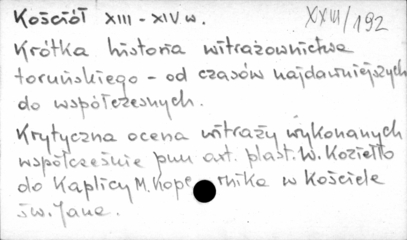 Kościół XIII - XIV w.
XXIII/192
Krótka historia witrażownictwa
toruńskiego - od czasów najdawniejszych
do współczesnych.
Krytyczna ocena witraży wykonanych
współcześnie pnn art. plast. W. Koziełło
do Kaplicy M. Kope rnika w Kościele
św. Jana.